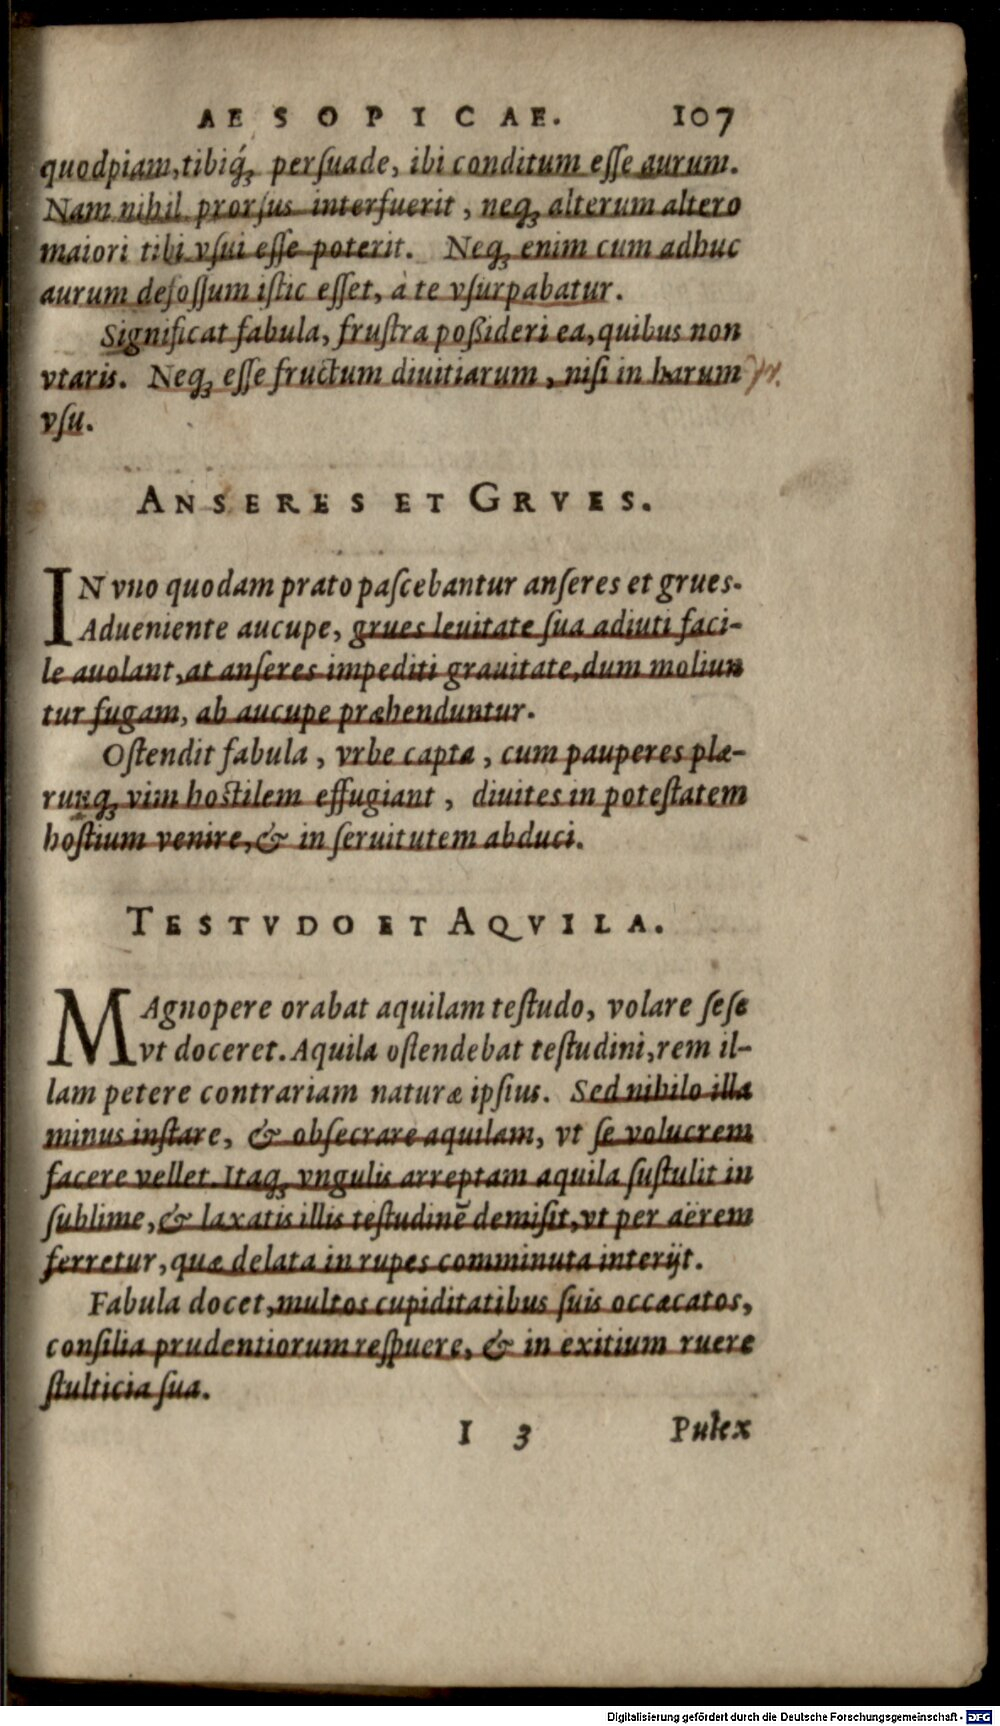 AESOPICAE. 107
quodpiam, tibiq́ꝫ persuade, ibi conditum esse aurum.
Nam nihil prorsus interfuerit, neqꝫ alterum altero
maiori tibi vsui esse poterit. Neqꝫ enim cum adhuc
aurum defossum istic esset, à te vsurpabatur.
Significat fabula, frustra poßideri ea, quibus non
vtaris. Neqꝫ esse fructum diuitiarum, nisi in harum
vsu.
ANSERES ET GRVES.
IN vno quodam prato pascebantur anseres et grues.
Adueniente aucupe, grues leuitate sua adiuti faci-
le auolant, at anseres impediti grauitate, dum moliun
tur fugam, ab aucupe præhenduntur.
Ostendit fabula, vrbe capta, cum pauperes plæ-
runqꝫ vim hostilem effugiant, diuites in potestatem
hostium venire, & in seruitutem abduci.
TESTVDO ET AQVILA.
MAgnopere orabat aquilam testudo, volare sese
vt doceret. Aquila ostendebat testudini, rem il-
lam petere contrariam naturæ ipsius. Sed nihilo illa
minus instare, & obsecrare aquilam, vt se volucrem
facere vellet. Itaqꝫ vngulis arreptam aquila sustulit in
sublime, & laxatis illis testudinē demisit, vt per aërem
ferretur, quæ delata in rupes comminuta interijt.
Fabula docet, multos cupiditatibus suis occæcatos,
consilia prudentiorum respuere, & in exitium ruere
stulticia sua.
I 3 Pulex
Digitalisierung gefördert durch die Deutsche Forschungsgemeinschaft - DFG